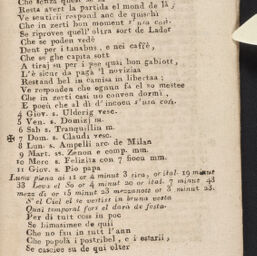 Che senza
Resta avert la partida el mond de là;
Ve sentirii respond anc de quaichi
Che in zerti bon moment s' usa così.
Se riproven quell' oltra sort de Lador
Che se poden vedè
Dent per i tanabus, e nei caffè,
Che se ghe capita sott
A tiraj su per i pee quai bon gabiott,
L'è sicur da pagà 'l novizia
Restand bel in camisa in libertaa;
Ve respondea che ognun fa el so mestee
Che in zerti casi no conven dormì,
E poeu che al dì d' incoeu s'usa così.
4 Giov. s. Ulderig vesc.
5 Ven. s. Domizi m.
6 Sab s. Tranquillin m.
✠ 7 Dom. s. Claudi vesc.
8 Lun. s. Ampelli arc de Milan
9 Mart. ss. Zenon e comp. mm.
10 Merc. s. Felizita con 7 fioeu mm.
11 Giov. s. Pio papa
Luna piena ai 11 or 4 minut 3 sira, or ital. 19 minut
33 Leva el So or 4 minut 20 or ital. 7 minut 43
mezz dì or 15 minut 23 mezzanott or 3 minut 23.
S'el Ciel el te vertiss in bruna vesta
Quai temporal fors el darà de festa.
Per dì tutt coss in poc
Se bimasimee de quai
Che no fan in tutt l'ann
Che popolà i postribel, e i ostarii,
Se casciee su de qui olter